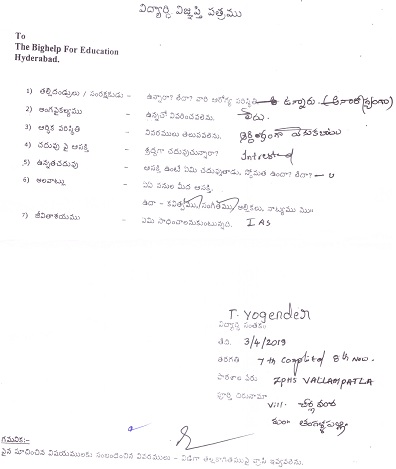 విద్యార్థి విజ్ఞప్తి పత్రము
To
The Bighelp For Education
Hyderabad.
1) తల్లిదండ్రులు / సంరక్షకుడు - ఉన్నారా? లేదా? వారి ఆరోగ్య పరిస్థితి - ఉన్నారు
2) అంగవైకల్యము - ఉన్నచో వివరించవలెను. లేదు.
3) ఆర్థిక పరిస్థితి - వివరములు తెలుపవలెను.
4) చదువు పై ఆసక్తి - శ్రద్ధగా చదువుచున్నారా? Intrested
5) ఉన్నతచదువు - ఆసక్తి ఉంటే ఏమి చదువుతాడు, స్తోమత ఉందా? లేదా?
6) అలవాట్లు - ఏఏ పనుల మీద ఆసక్తి.
ఉదా - కవిత్వము, సంగీతము, అల్లికలు, నాట్యము మొ॥
7) జీవితాశయము - ఏమి సాధించాలనుకుంటున్నది. IAS
T. Yogender
విద్యార్థి సంతకం
తేది. 3/4/2019
తరగతి 7th Complited 8th Now.
పాఠశాల పేరు ZPHS VALLAMPATLA
పూర్తి చిరునామా Vill.
గమనిక:-
పైన సూచించిన విషయములకు సంబందించిన వివరములు - విడిగా తెల్లకాగితముపై వ్రాసి ఇవ్వవలెను.